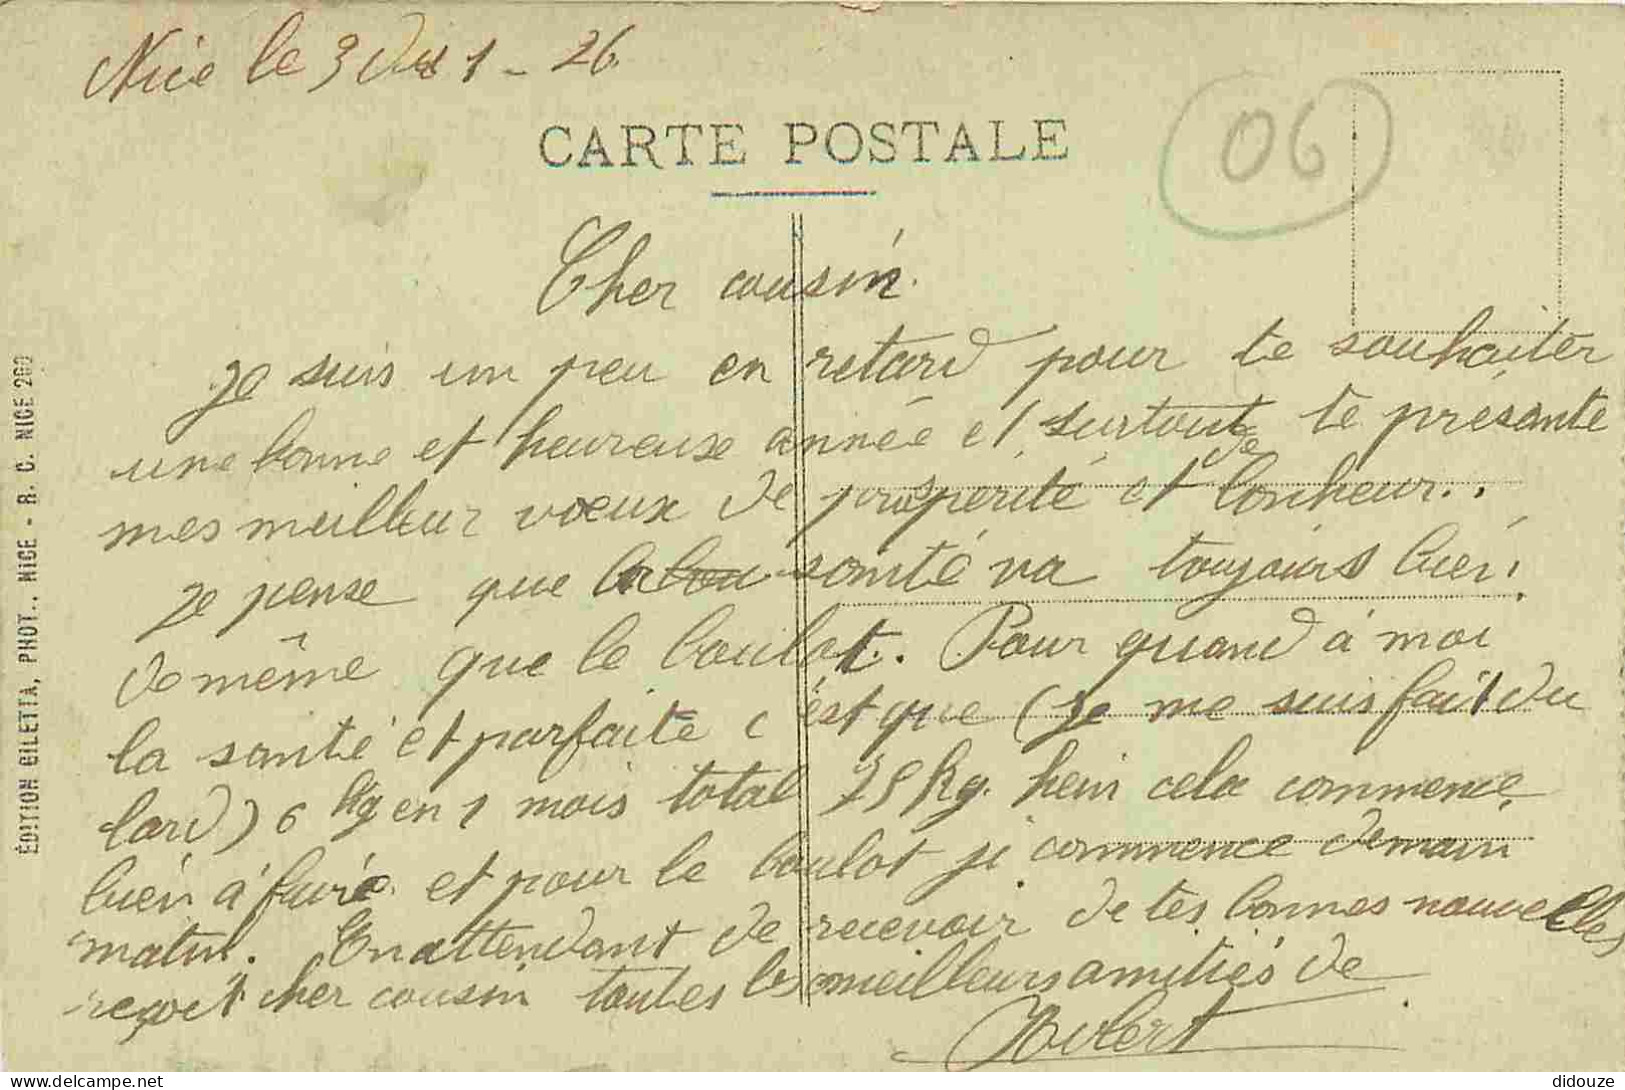 Nice le 3 1 - 26
CARTE POSTALE
06
Cher cousin.
Je suis un peu en retard pour te souhaiter
une bonne et heureuse année et surtout de te présante
mes meilleur voeux de prospérité et bonheur..
Je pense que santé va toujours bien!
de même que le boulot. Pour quand à moi
la santé et parfaite c'est que (je me suis fait du
lard) 6 kg en 1 mois total 75 kg. hein cela commence
bien à faire. et pour le boulot je commence demain
matin. En attendant de recevoir de tes bonnes nouvelles
reçoit cher cousin toutes les meilleurs amitiés de
Robert
ÉDITION GILETTA, PHOT., NICE - R. C. NICE 200
didouze